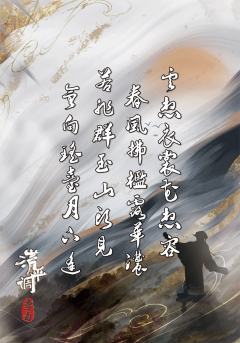 雲想衣裳花想容
春風拂檻露華濃
若非群玉山頭見
會向瑤臺月下逢
清平調